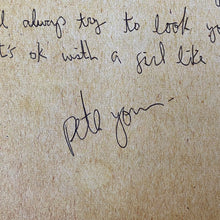 always try to look yo
t's ok with a girl like
pete